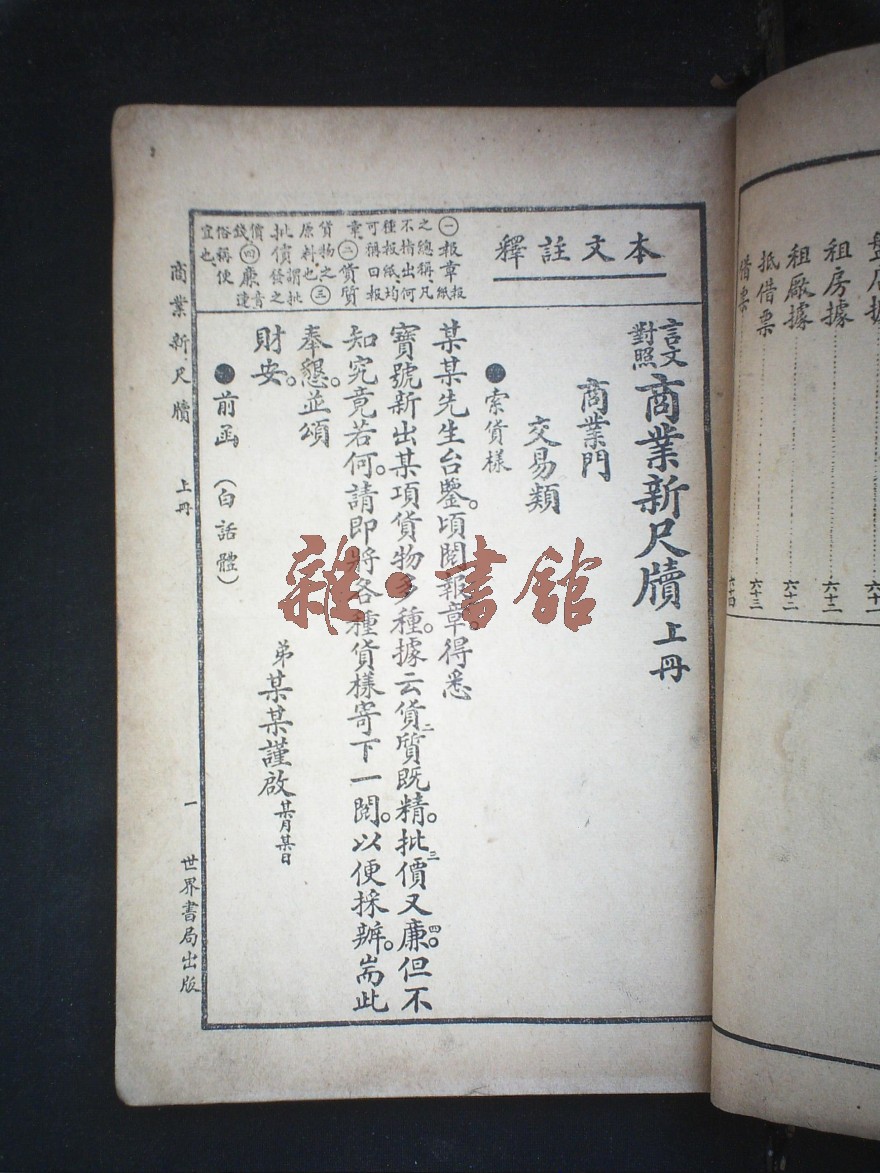 盤店據
租房據……六十三
租廠據……六十二
抵借票……六十三
借票……六十四
本文註釋
㊀報章報紙
之總稱凡
不指出何
種報紙均
可稱曰報
章㊁貨質
貨物之
原料也㊂
批價謂批發之
價錢㊃廉音連
俗稱便
宜也
言文對照商業新尺牘 上冊
商業門
交易類
索貨樣
某某先生台鑒。頃閱報章。得悉
寶號新出某項貨物多種。據云貨質二既精。批三價又廉四。但不
知究竟若何。請即將各種貨樣寄下一閱。以便採辦。耑此
奉懇。並頌
財安。
弟某某謹啟某月某日
前函(白話體)
商業新尺牘 上冊 一 世界書局出版
雜·書館